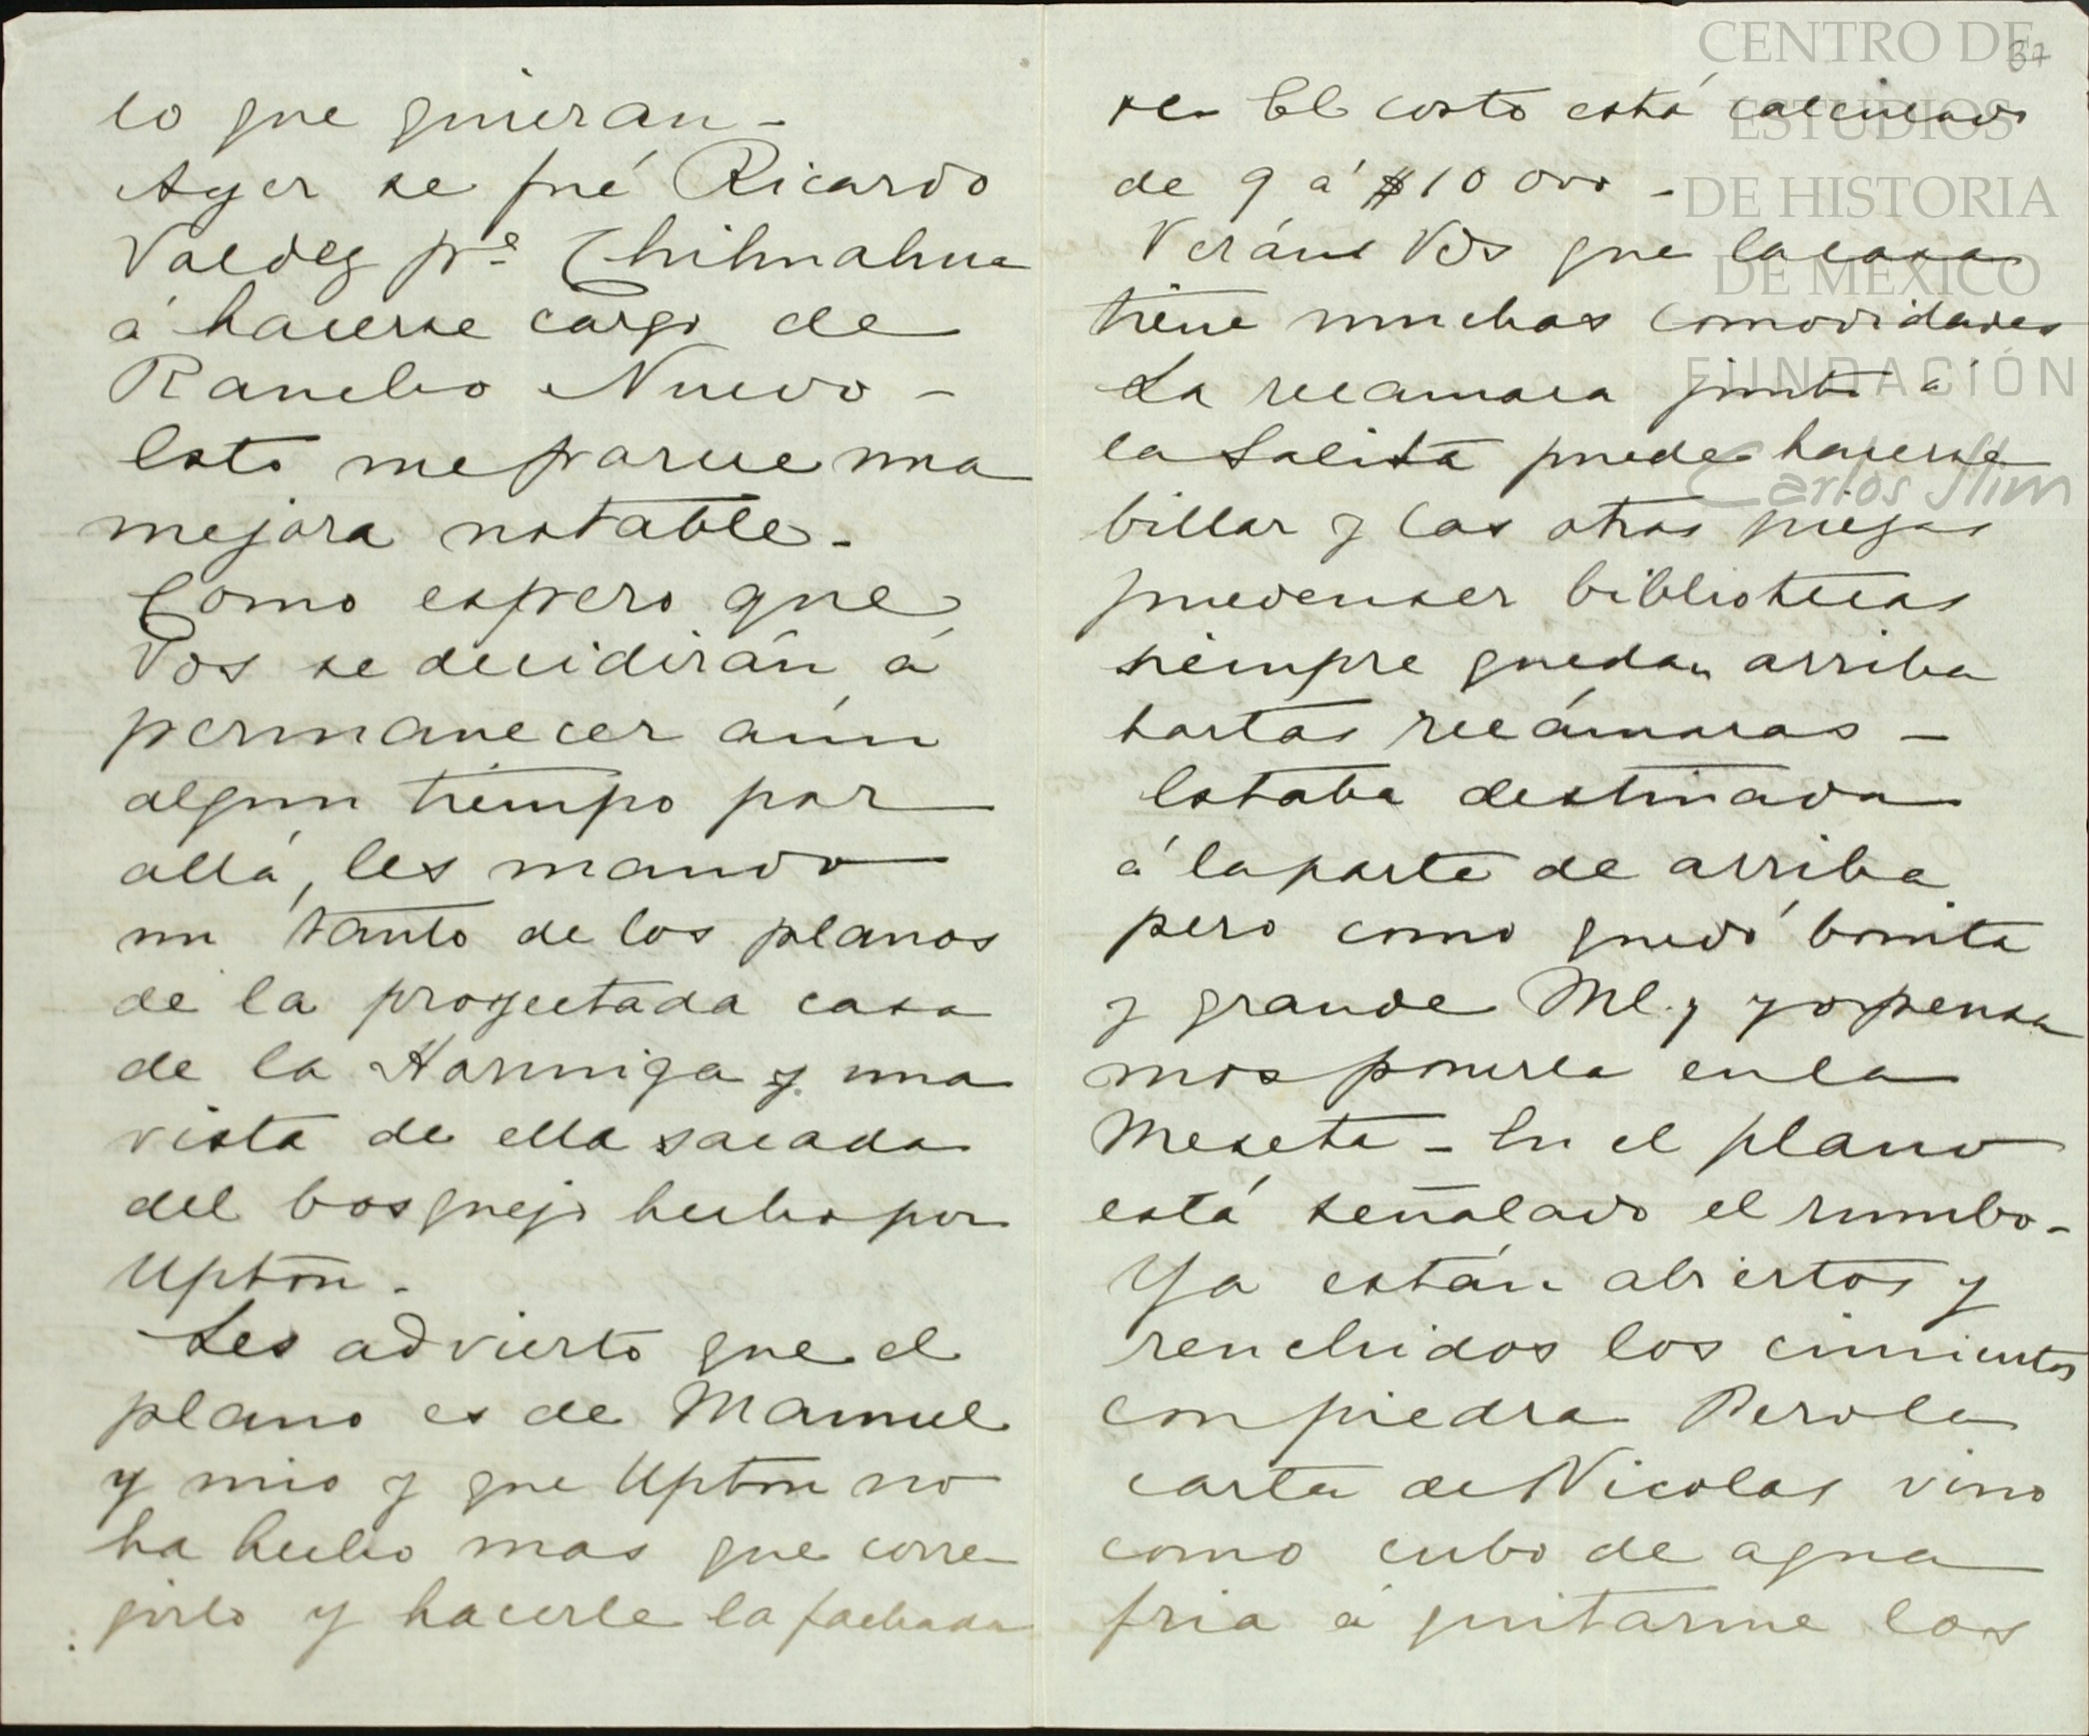 lo que quieran -
Ayer se fué Ricardo
Valdez pª Chihuahua
á hacerse cargo de
Rancho Nuevo -
Esto me parece una
mejora notable -
Como espero que
Vds se decidirán á
permanecer aún
algun tiempo por
allá, les mando
un tanto de los planos
de la proyectada casa
de la Hormiga y una
vista de ella sacada
del bosquejo hecho por
Upton -
Les advierto que el
plano es de Manuel
y mio y que Upton no
ha hecho mas que corre
jirlo y hacerle la fachada
37
El costo está calculado
de 9 á $10 000 -
Verán Vds que la casa
tiene muchas comodidades
La recamara junto a
la Salita puede hacerse
billar y las otras piezas
pueden ser bibliotecas
siempre quedan arriba
hartas recámaras -
Estaba destinada
á la parte de arriba
pero como quedó bonita
y grande Ml. y yo pensa
mos ponerla en la
Meseta - En el plano
está señalado el rumbo -
Ya están abiertos y
renchidos los cimientos
con piedra Pero la
carta de Nicolas vino
como cubo de agua
fria á quitarme los
CENTRO DE
ESTUDIOS
DE HISTORIA
DE MÉXICO
FUNDACIÓN
Carlos Slim